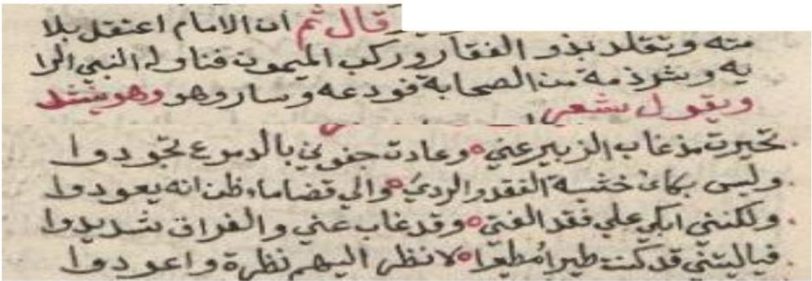 قال ثم ان الامام اعتقل بلا
مته وتقلد بذو الفقار وركب الميمون فناوله النبي الرا
يه وشرذمة من الصحابة فودعه وساروهو وهو ينشد
ويقول شعر
تحيرت مذ غاب الزبير عني وعادت جفوني بالدموع تجودوا
وليس بكائ خشية الفقد والردي والي قضاما ظن انه يعودوا
ولكنني ابكي علي فقد الفتي وقد غاب عني والفراق شديدوا
فياليتني قد كنت طيرا مطيعا لانظر اليهم نظرة واعودوا